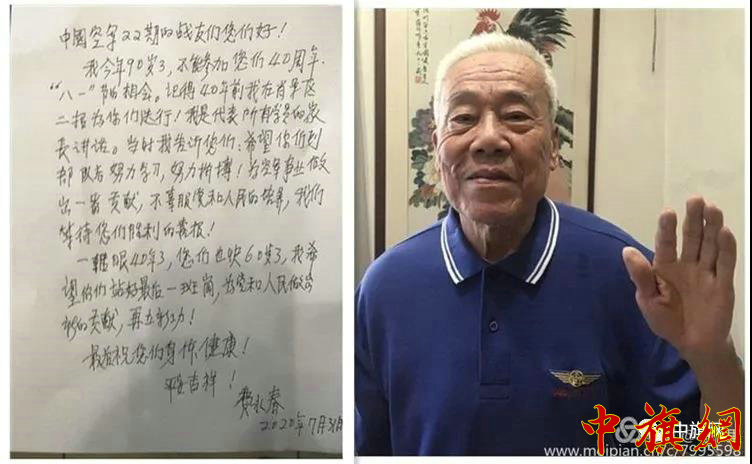 中国空军22期的战友们您们好!
我今年90岁了,不能参加您们40周年
"八一"节的相会。记得40年前我在肖泉区
二招为你们送行!我是代表所有学员的家
长讲话。当时我告诉您们:希望你们到
部队后努力学习,努力拚搏!为空军事业做
出一番贡献,不辜服党和人民的培养,我们
等待您们胜利的喜报!
一转眼40年了,您们也快60岁了,我希
望你们站好最后一班岗,为党和人民做出
新的贡献,再立新功!
最后祝您们身体健康!
平安吉祥!
2020年7月31日
中旗網
www.meipian.cn/c/7995598